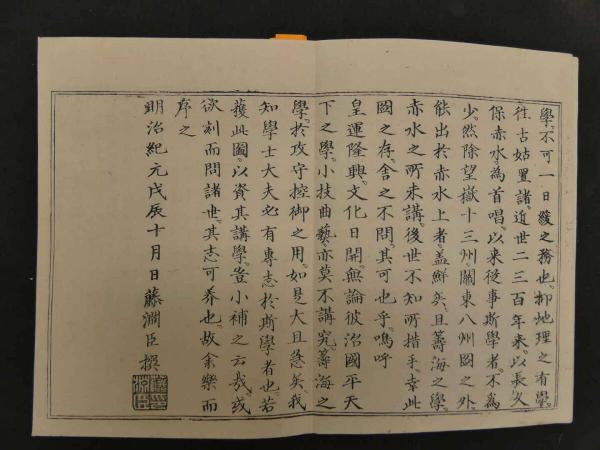 學、不可一日緩之務也。抑地理之有學。
往古姑置諸、近世二三百年來。以長久
保赤水。為首唱。以來從事斯學者。不為
少。然除望嶽十三州、關東八州圖之外、
能出於赤水上者。蓋鮮矣。且籌海之學。
赤水之所未講。後世不知所措手。幸此
圖之存、舍之不問、其可也乎。嗚呼
皇運隆興。文化日開。無論彼治國平天
下之學。小技曲藝。亦莫不講究。籌海之
學。於攻守控御之用。如是大且急矣。我
知學士大夫必有專志於斯學者也。若
獲此圖。以資其講學。豈小補之云哉。或
欲刻而問諸世。其志可养也。故余樂而
序之
明治紀元戊辰十月日藤淵臣撰